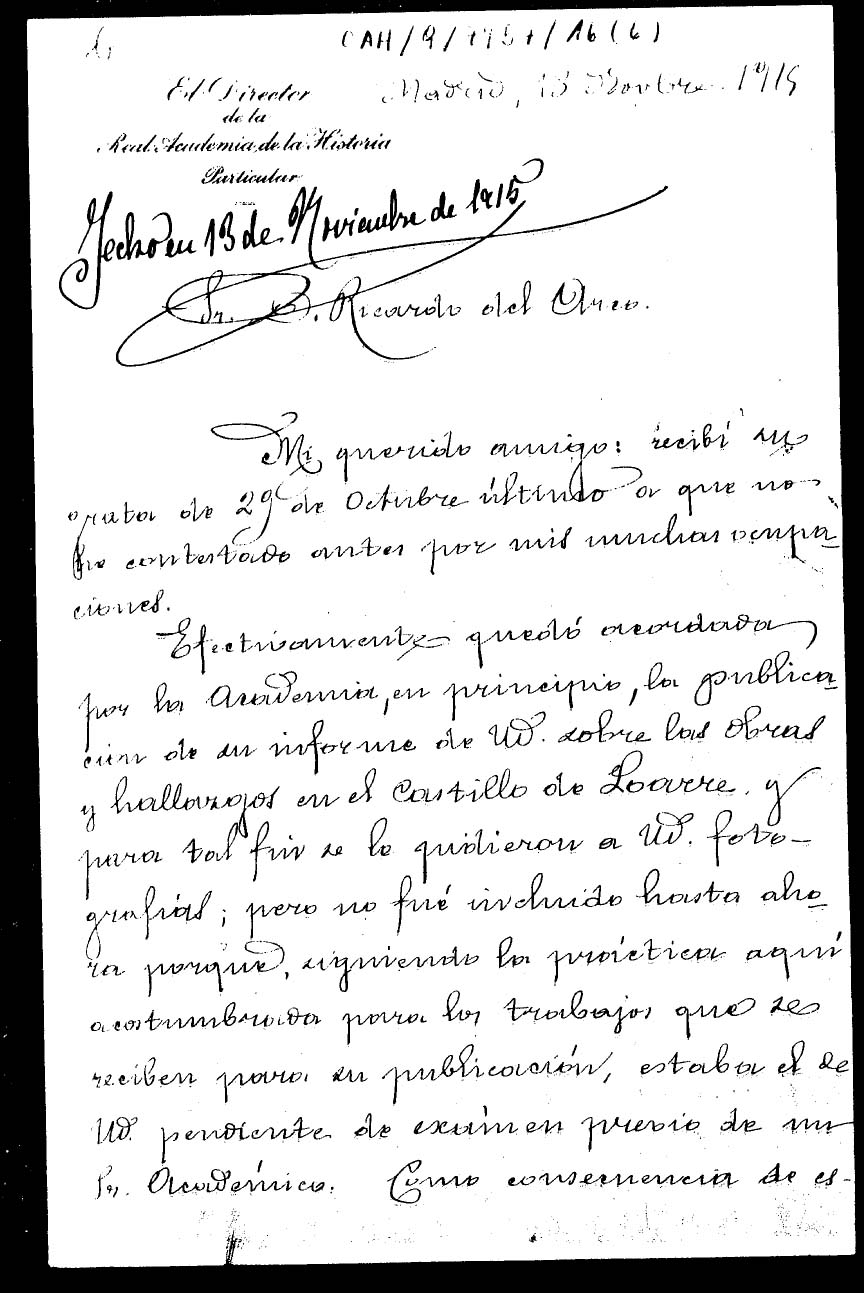 CAH/9/7957/16(6)
Madrid, 13 Novbre. 1915
El Director
de la
Real Academia de la Historia
Particular
Fecho en 13 de Noviembre de 1915
Sr. D. Ricardo del Arco.
Mi querido amigo: recibí su
grata de 29 de Octubre último a que no
he contestado antes por mis muchas ocupa-
ciones.
Efectivamente quedó acordada
por la Academia, en principio, la publica-
ción de su informe de Ud. sobre las obras
y hallazgos en el Castillo de Loarre, y
para tal fin se le pidieron a Ud. foto-
grafías; pero no fué incluido hasta aho-
ra porque, siguiendo la práctica aquí
acostumbrada para los trabajos que se
reciben para su publicación, estaba el de
Ud. pendiente de exámen previo de un
Sr. Académico. Como consecuencia de es-